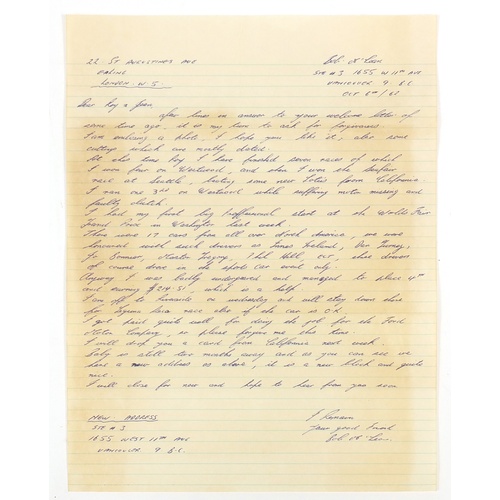 22 St Augustines Ave
Ealing
London W.5.
Ste #3 1655 W 11th Ave
Vancouver 9 B.C
Oct 6th / 62
Dear Roy & Joan,
After times in answer to your welcome letter of
some time ago, it is my turn to ask for forgiveness.
I am enclosing a photo, I hope you like it, also some
cuttings which are mostly dated.
At this time Roy I have finished seven races of which
I won four on Westwood, and then I won the
race at Seattle, beating some new Lotus from California
I ran one 3rd on Westwood while suffering motor missing and
faulty clutch.
I had my first big Professional start at the World's Fair
Grand Prix in Washington last week.
There were 17 cars from all over North America, we were
honoured with such drivers as Innes Ireland, Dan Gurney,
Jo Bonnier, Masten Gregory, Phil Hill, ect, these drivers
of course drove in the sports car event only.
Anyway I was badly undergeared and managed to place 4th
and earning $214.51, which is a help.
I am off to on wednesday and will stay down there
for Laguna Seca race also if the car is O.K
I got paid quite well for doing the job for the Ford
Motor Company, so please forgive me this time.
I will drop you a card from California next week.
Baby is still two months away and as you can see we
have a new address as above, it is a new block and quite
nice.
I will close for now and hope to hear from you soon
I remain
Your good friend
New Address
Ste #3
1655 West 11th Ave
Vancouver 9 B.C.